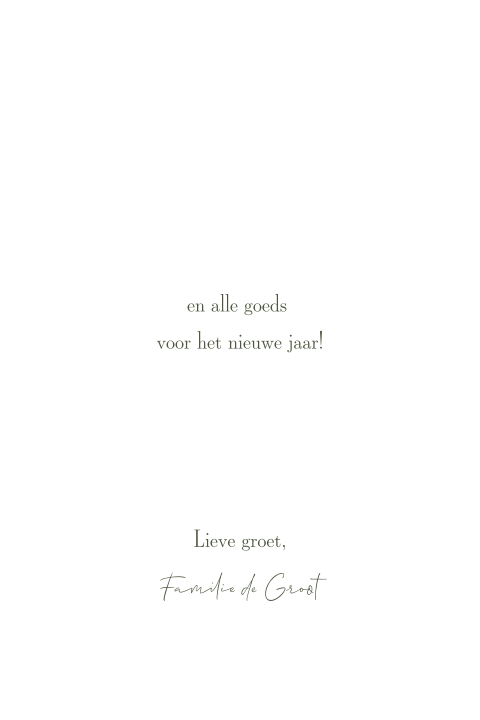 en alle goeds
voor het nieuwe jaar!
Lieve groet,
Familie de Groot